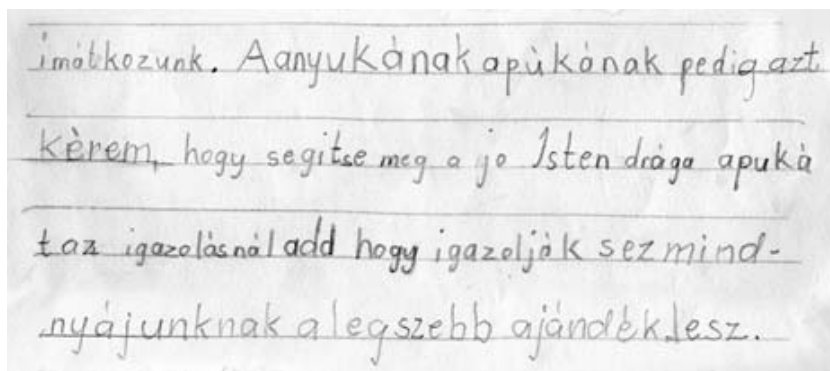 imátkozunk. Aanyukának apúkának pedig azt
kèrem, hogy segitse meg a jo Isten drága apuká
taz igazolásnál add hogy igazolják sez mind-
nyájunknak a legszebb ajándék lesz.